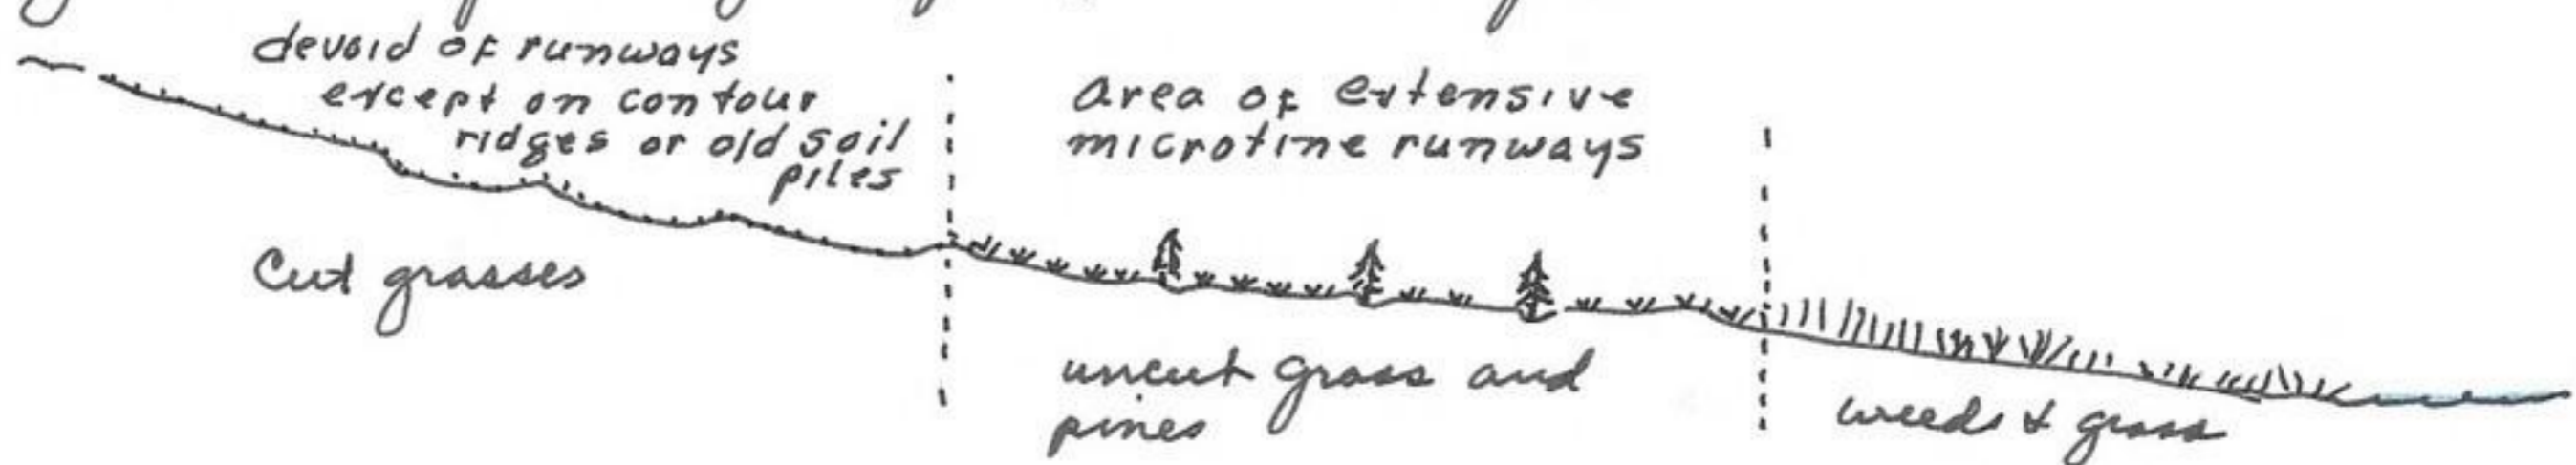 devoid of runways
except on contour
ridges or old soil
piles
Area of extensive
microtine runways
Cut grasses
uncut grass and
pines
weeds & grass